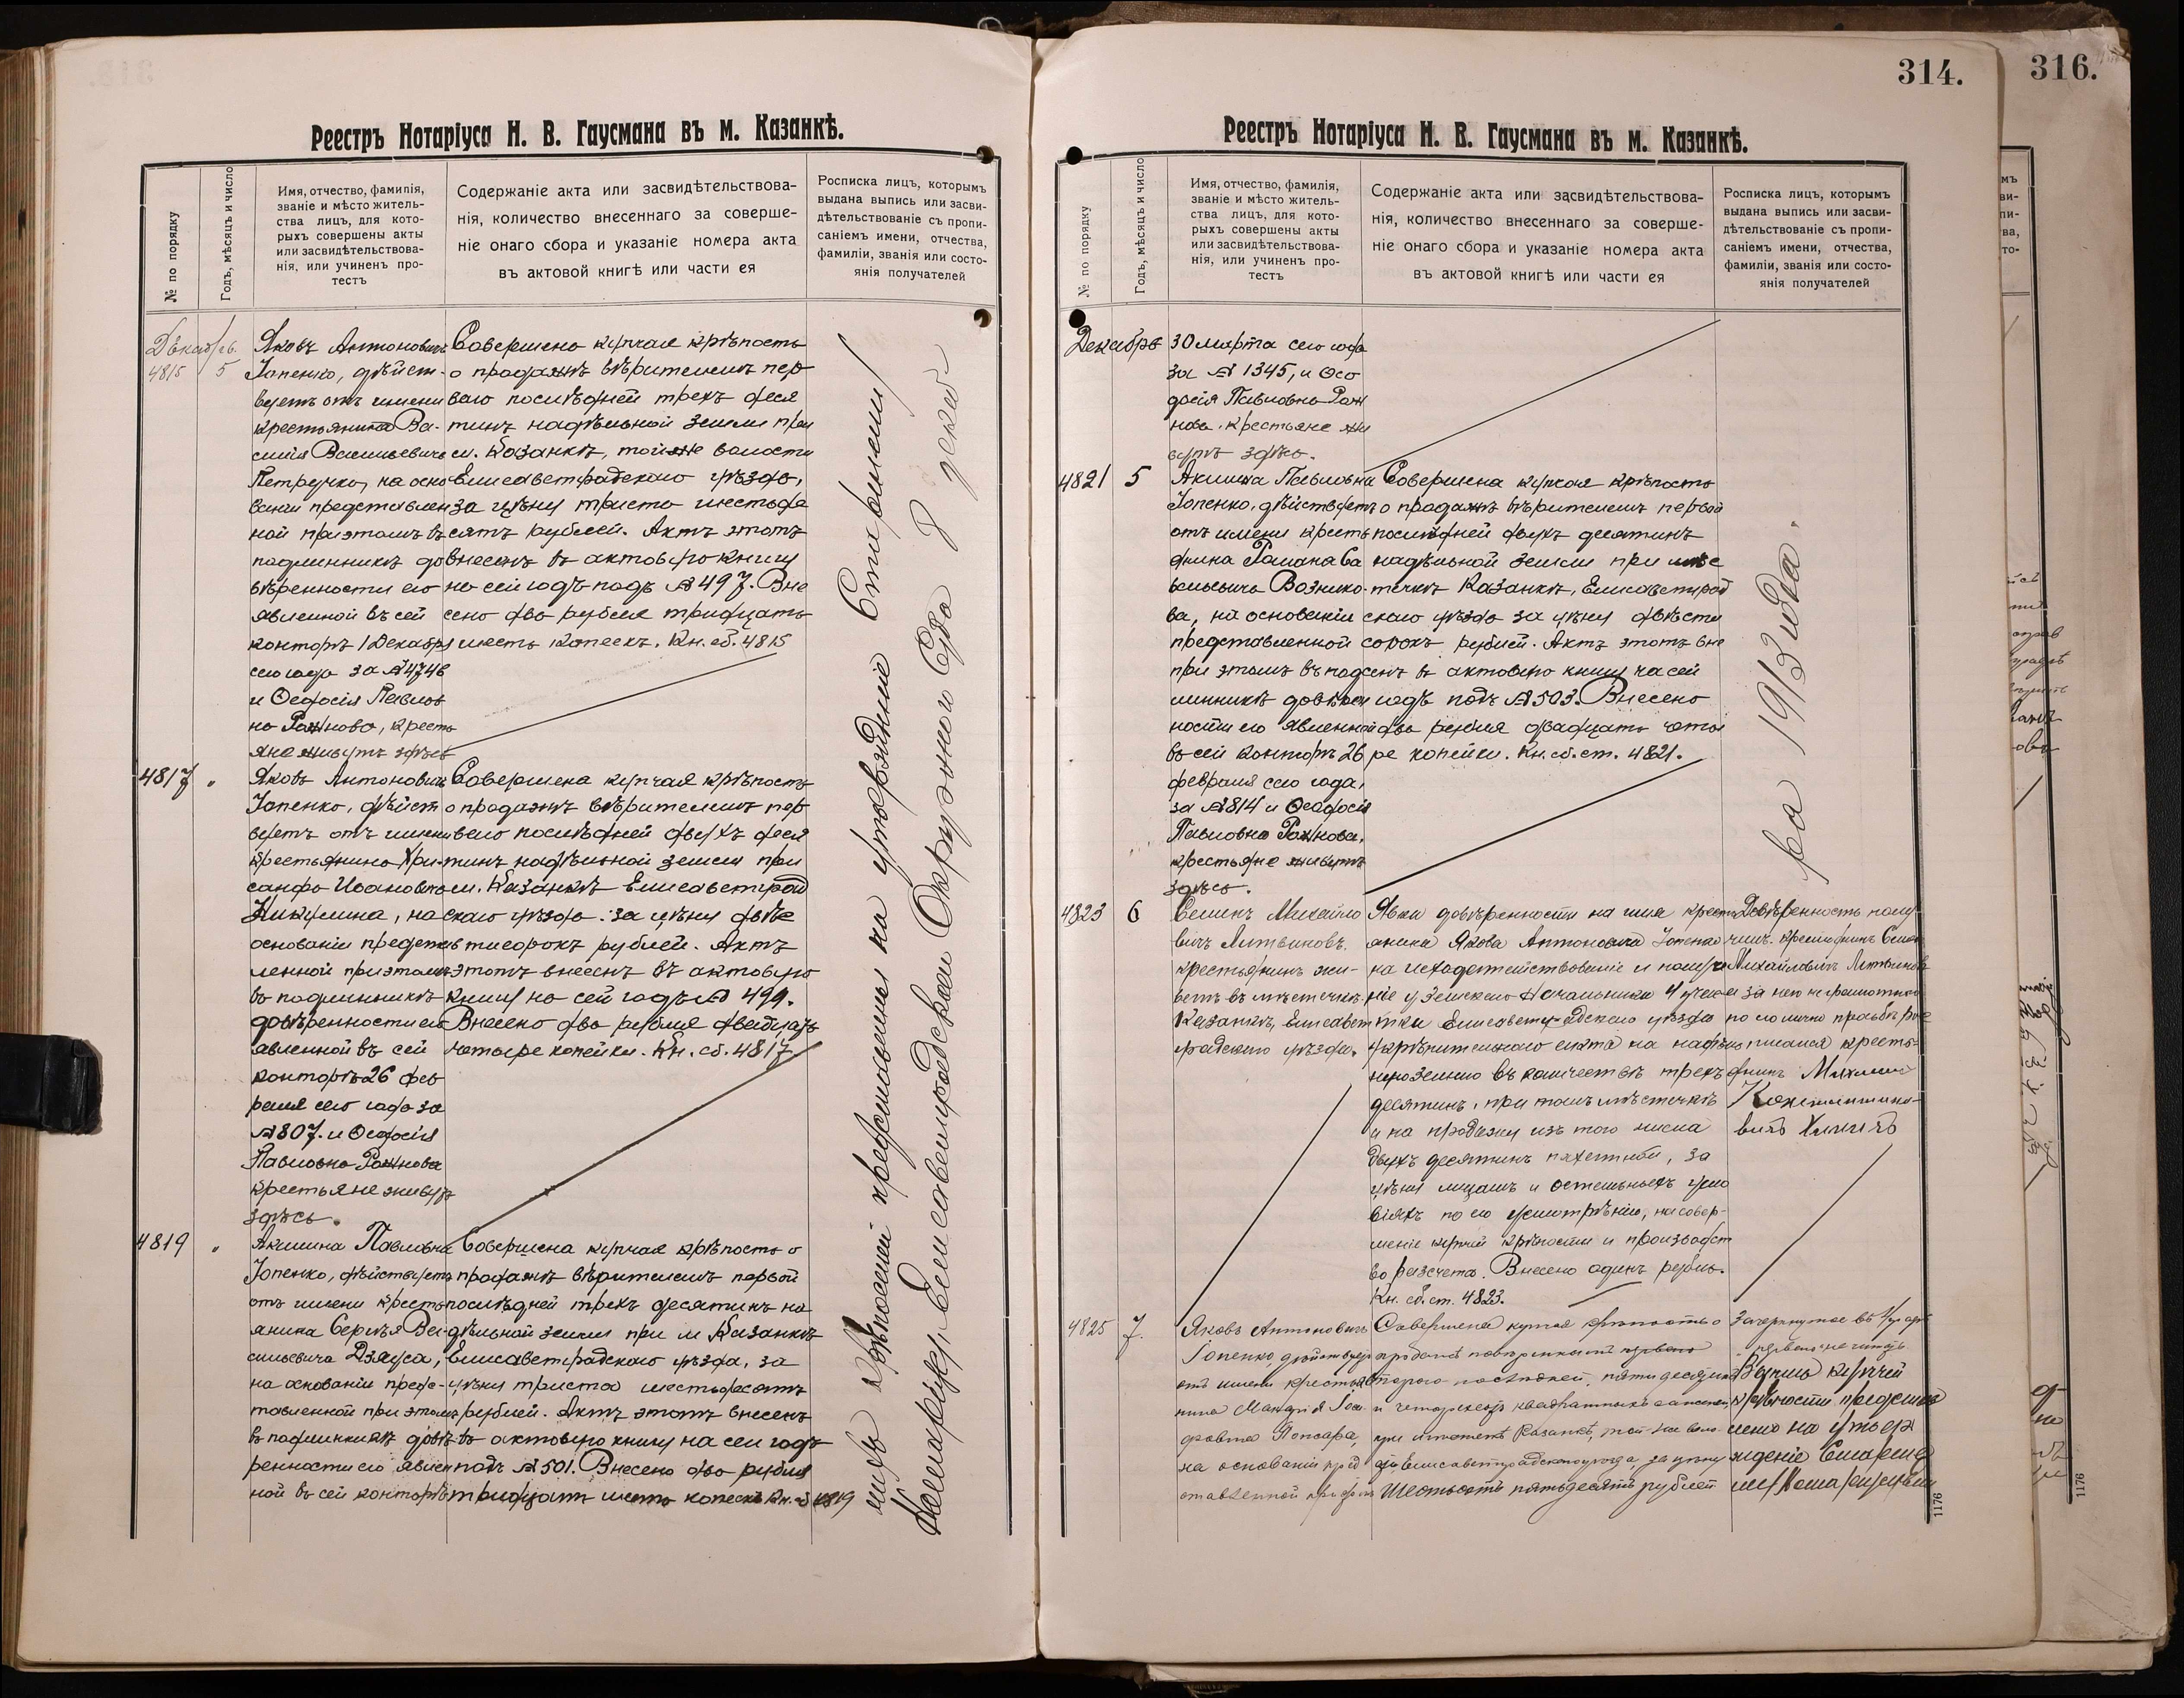 314.
316.
Реестръ Нотаріуса Н. В. Гаусмана въ м. Казанкѣ.
№ по порядку
Годъ, мѣсяцъ и число
Имя, отчество, фамилія,
званіе и мѣсто житель-
ства лицъ, для кото-
рыхъ совершены акты
или засвидѣтельствова-
нія, или учиненъ про-
тестъ
Содержаніе акта или засвидѣтельствова-
нія, количество внесеннаго за соверше-
ніе онаго сбора и указаніе номера акта
въ актовой книгѣ или части ея
Росписка лицъ, которымъ
выдана выпись или засви-
дѣтельствованіе съ пропи-
саніемъ имени, отчества,
фамиліи, званія или состо-
янія получателей
Декабрь
4815 5
Яковъ Антоновичъ
Іопенко, дѣйст-
вуетъ отъ имени
крестьянина Ва-
силія Васильевича
Петречко, на осно
ваніи представлен
ной при этомъ въ
подлинникѣ до
вѣренности его
явленной въ сей
конторѣ 1 Декабря
сего года за № 4746
и Ѳеодосія Павлов
на Рожнова, кресть
яне живутъ здѣсь
Совершена купчая крѣпость
о продажѣ вѣрителемъ пер
ваго послѣдней трехъ деся
тинъ надѣльной земли при
м. Казанкѣ, той же волости
Елисаветградскаго уѣзда,
за цѣну триста шестьде
сятъ рублей. Актъ этотъ
внесенъ въ актовую книгу
на сей годъ подъ № 497. Вне
сено два рубля тридцать
шесть копеекъ. Кн. сб. 4815
4817 "
Яковъ Антоновичъ
Іопенко, дѣйст
вуетъ отъ имени
крестьянина Хри-
санфа Иванов
Никулина, на
основаніи предста
вленной при этомъ
въ подлинникѣ
довѣренности его
явленной въ сей
конторѣ 26 фев
раля сего года за
№ 807. и Ѳеодосія
Павловна Рожнова
крестьяне живутъ
здѣсь.
Совершена купчая крѣпость
о продажѣ вѣрителемъ пер
ваго послѣдней двухъ деся
тинъ надѣльной земли при
м. Казанкѣ Елисаветград
скаго уѣзда. за цѣну двѣ
сти сорокъ рублей. Актъ
этотъ внесенъ въ актовую
книгу на сей годъ № 499.
Внесено два рубля двадцать
четыре копейки. Кн. сб. 4817
4819 "
Акилина Павловна
Іопенко, дѣйствуетъ
отъ имени кресть
янина Сергѣя Ва-
сильевича Дзяуса,
на основаніи предс-
тавленной при этомъ
въ подлинникѣ довѣ
ренности его явлен
ной въ сей конторѣ
Совершена купчая крѣпость о
продажѣ вѣрителемъ первой
послѣдней трехъ десятинъ на
дѣльной земли при м Казанкѣ
Елисаветградскаго уѣзда, за
цѣну триста шестьдесятъ
рублей. Актъ этотъ внесенъ
въ актовую книгу на сей годъ
подъ № 501. Внесено два рубля
тридцать шесть копеекъ Кн. сб 4819
крѣпостей представлены на утвержденіе Старшему
Нотаріусу Елисаветградскаго Окружного Суда 8 декаб
Реестръ Нотаріуса Н. В. Гаусмана въ м. Казанкѣ.
№ по порядку
Годъ, мѣсяцъ и число
Имя, отчество, фамилія,
званіе и мѣсто житель-
ства лицъ, для кото-
рыхъ совершены акты
или засвидѣтельствова-
нія, или учиненъ про-
тестъ
Содержаніе акта или засвидѣтельствова-
нія, количество внесеннаго за соверше-
ніе онаго сбора и указаніе номера акта
въ актовой книгѣ или части ея
Росписка лицъ, которымъ
выдана выпись или засви-
дѣтельствованіе съ пропи-
саніемъ имени, отчества,
фамиліи, званія или состо-
янія получателей
Декабрь
30 марта сего года
за № 1345, и Ѳео
досія Павловна Рож
нова. крестьяне жи
вутъ здѣсь.
4821 5
Акилина Павловна
Іопенко, дѣйствуетъ
отъ имени кресть
янина Романа Са
вельевича Вознико-
ва, на основаніи
представленной
при этомъ въ под
линникѣ довѣрен
ности его явленной
въ сей конторѣ 26
февраля сего года,
за № 814 и Ѳеодосія
Павловна Рожнова,
крестьяне живутъ
здѣсь.
Совершена купчая крѣпость
о продажѣ вѣрителемъ первой
послѣдней двухъ десятинъ
надѣльной земли при мѣс
течкѣ Казанкѣ, Елисаветград
скаго уѣзда за цѣну двѣсти
сорокъ рублей. Актъ этотъ вне
сенъ въ актовую книгу на сей
годъ подъ № 503. Внесено
два рубля двадцать четы
ре копейки. Кн. сб. ст. 4821.
ра 1913 года.
4823 6
Семенъ Михайло
вичъ Литвиновъ.
крестьянинъ жи-
ветъ въ мѣстечкѣ
Казанкѣ, Елисавет
градскаго уѣзда.
Явка довѣренности на имя кресть
янина Якова Антоновича Іопенко
на ходатайствованіе и получе
ніе у Земскаго Начальника 4 участ
ка Елисаветградскаго уѣзда
укрѣпительнаго акта на надѣль
ную землю въ количествѣ трехъ
десятинъ, при томъ мѣстечкѣ
и на продажу изъ того числа
двухъ десятинъ пахатной, за
цѣны лицамъ и остальныхъ усло
віяхъ по его усмотрѣнію, на совер-
шеніе купчей крѣпости и производст
во разсчета. Внесено одинъ рубль.
Кн. сб. ст. 4823.
Довѣренность полу-
чилъ. крестьянинъ Семен
Михайловичъ Литвиновъ
а за него неграмотнаго
по его личной просьбѣ рос
писался кресть-
янинъ Михаилъ
Константино-
вичъ
4825 7.
Яковъ Антоновичъ
Іопенко, дѣйствуетъ
отъ имени крестья
нина
на основаніи пред
ставленной при этомъ
Совершена купчая крѣпость о
продажѣ повѣреннымъ перваго
втораго послѣдней, пяти десятинъ
и четырехсотъ квадратныхъ сажень
при мѣстечкѣ Казанкѣ, той же воло
сти, Елисаветградскаго уѣзда, за цѣну
Шестьсотъ пятьдесятъ рублей
Зачеркнутое въ 4 графѣ
"перваго" не читать
Выпись купчей
крѣпости представ
лена на утверж
деніе Старше
му Нотаріусу
1176
1176